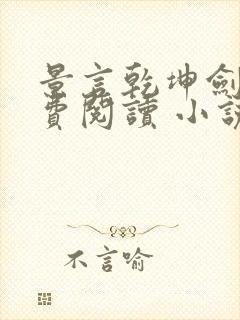 景言乾坤劍
費閱讀 小說
不言喻